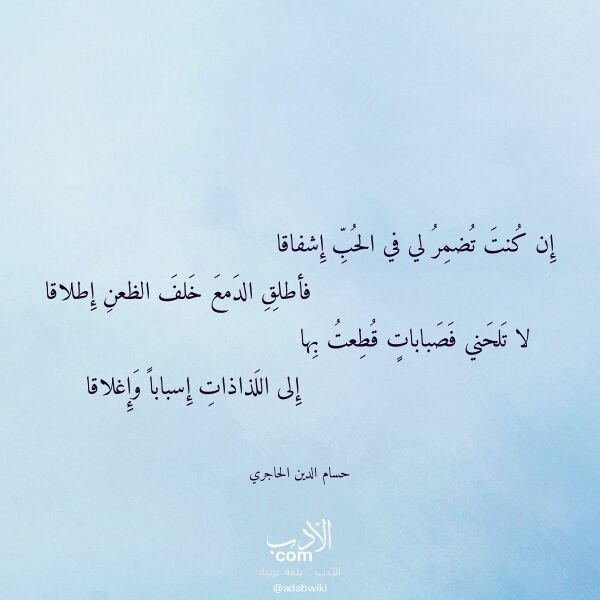 إِن كُنتَ تُضمِرُ لي في الحُبِّ إِشفاقا
فأطلِقِ الدَمعَ خَلفَ الظعنِ إِطلاقا
لا تَلحَني فَصَباباتٍ قُطِعتُ بِها
إِلى اللَذاذاتِ إِسباباً وَإِغلاقا
حسام الدين الحاجري
الأدب
com
الأدب .. بلغة عربية
@adabwiki